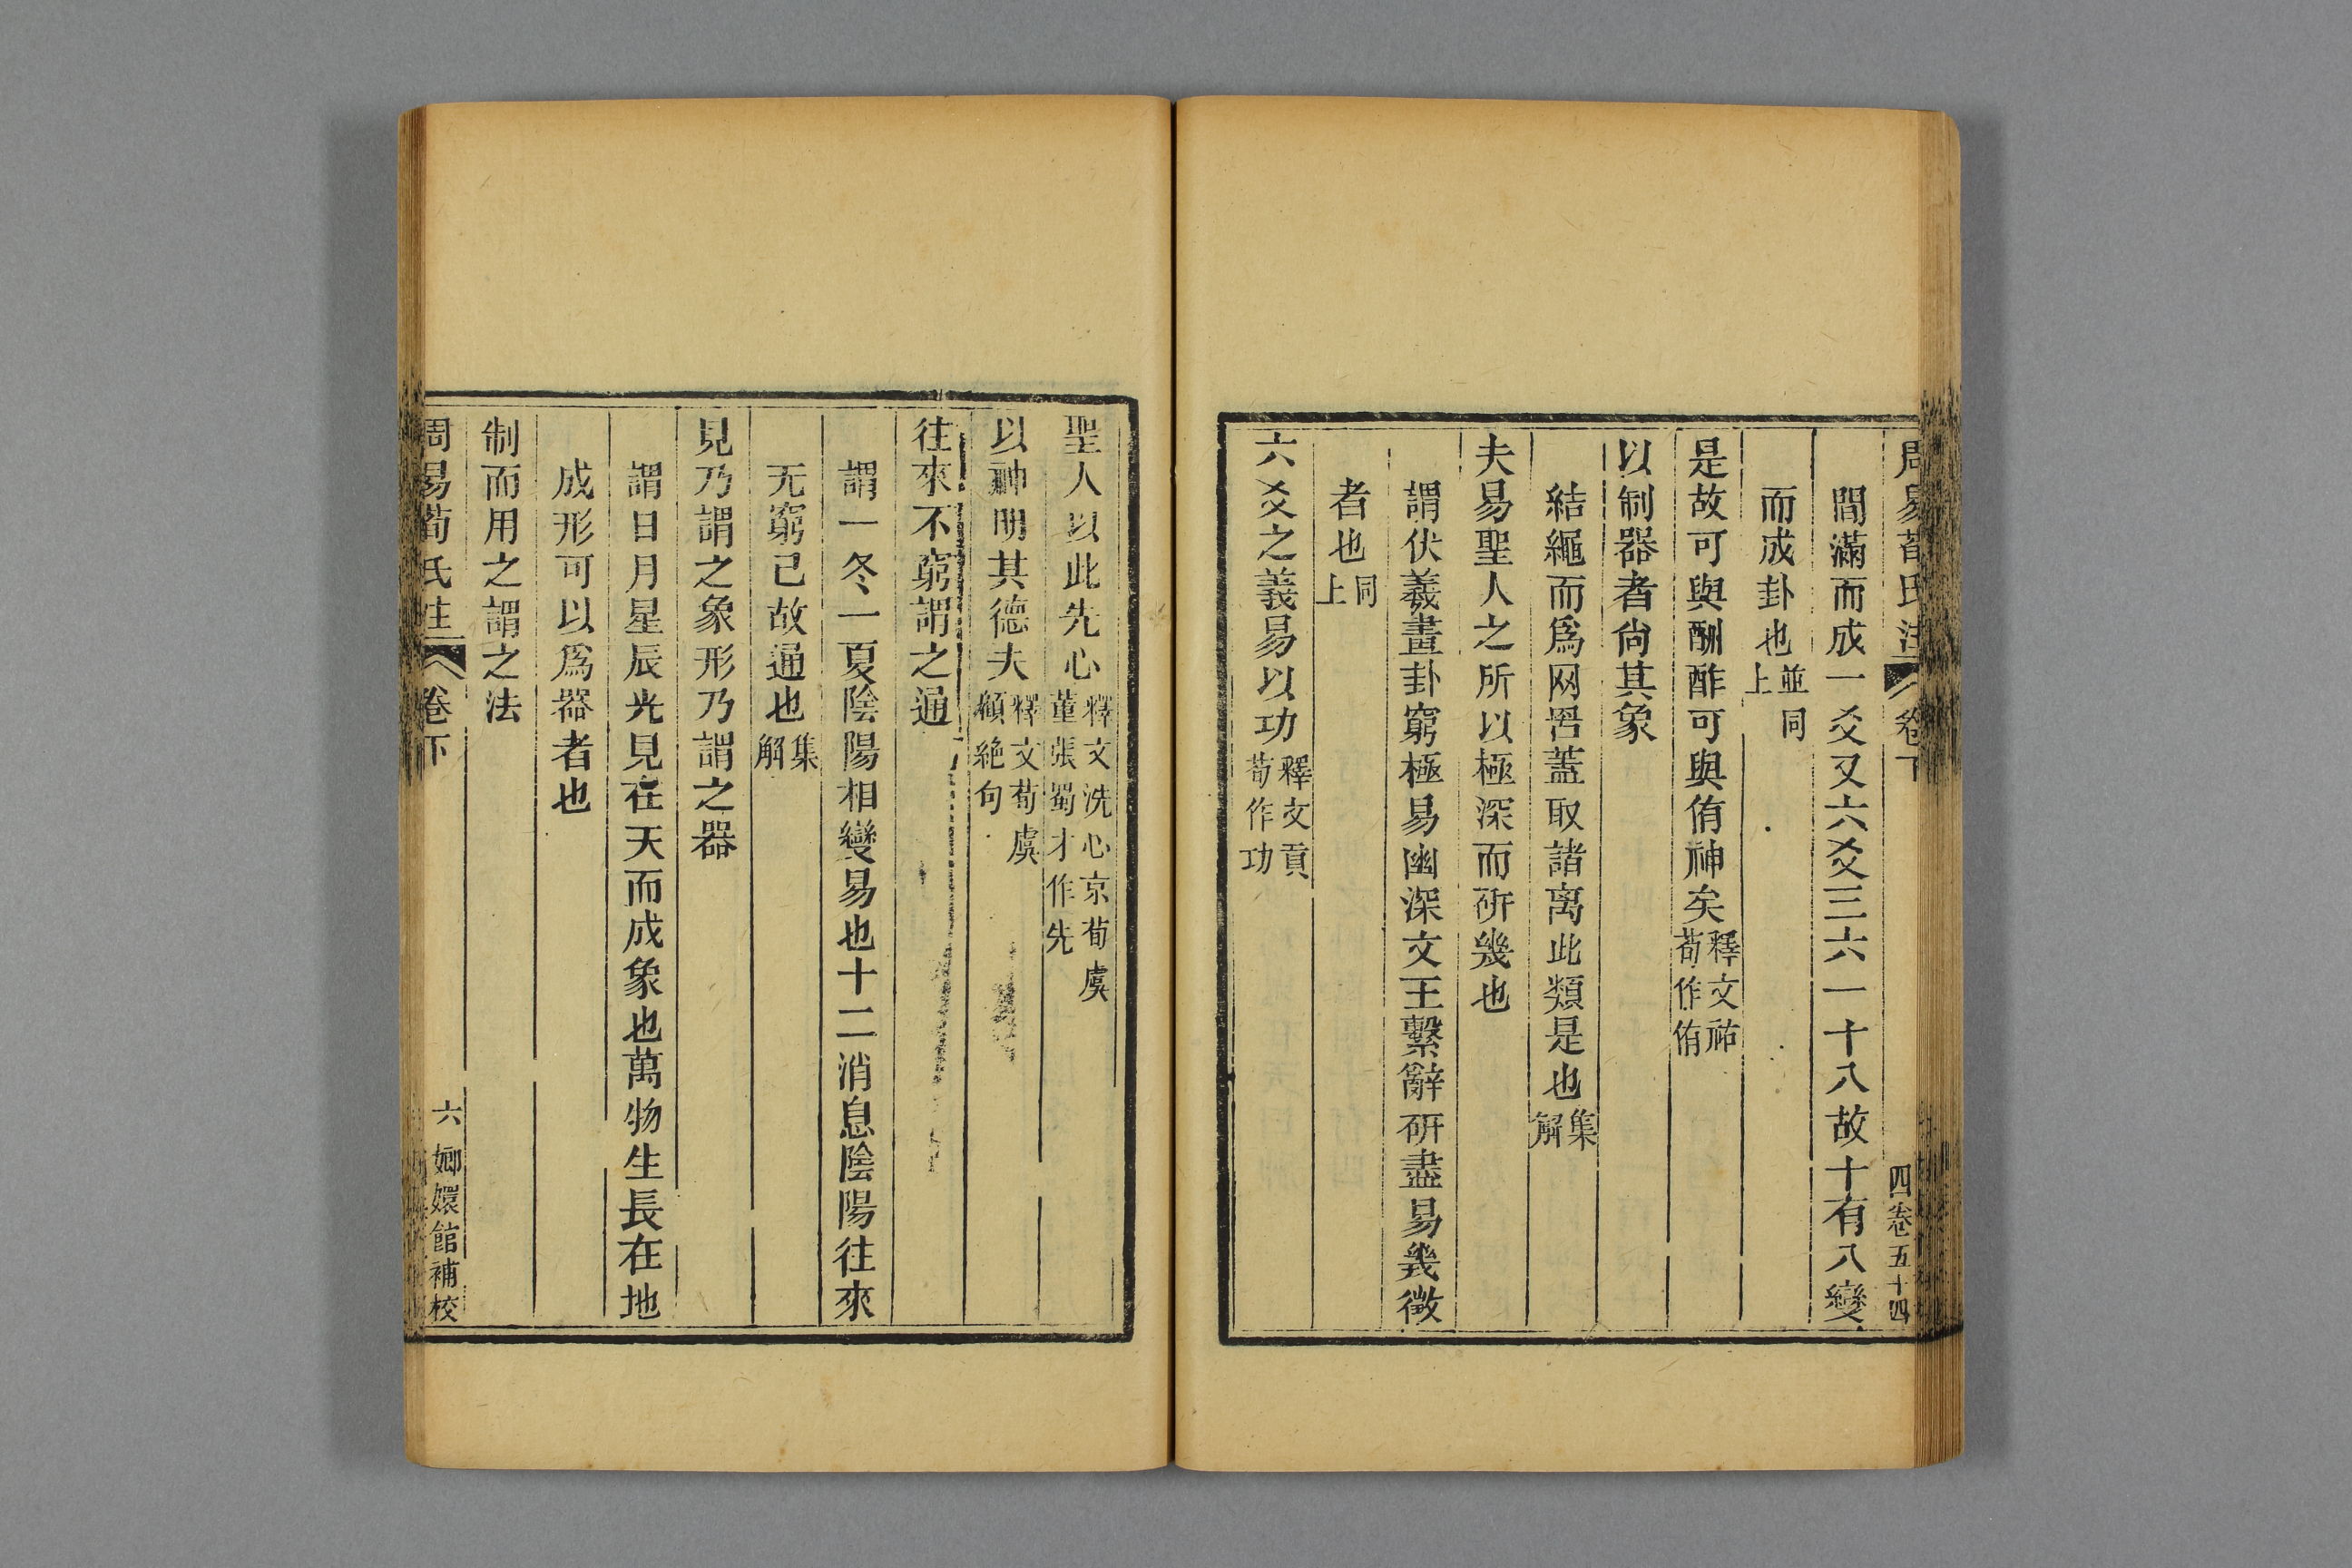 周易荀氏注 卷下 四 卷五十四
間滿而成一爻又六爻三六一十八故十有八變
而成卦也並同上
是故可與酬酢可與侑神矣釋文祐荀作侑
以制器者尙其象
結繩而爲网罟蓋取諸离此類是也集解
夫易聖人之所以極深而硏幾也
謂伏羲畫卦窮極易幽深文王繫辭硏盡易幾微
者也同上
六爻之義易以功釋文貢荀作功
聖人以此先心釋文洗心京荀虞董張蜀才作先
以神明其德夫釋文荀虞顧絕句
往來不窮謂之通
謂一冬一夏陰陽相變易也十二消息陰陽往來
无窮已故通也集解
見乃謂之象形乃謂之器
謂日月星辰光見在天而成象也萬物生長在地
成形可以爲器者也
制而用之謂之法
周易荀氏注 卷下 六 嫏嬛館補校